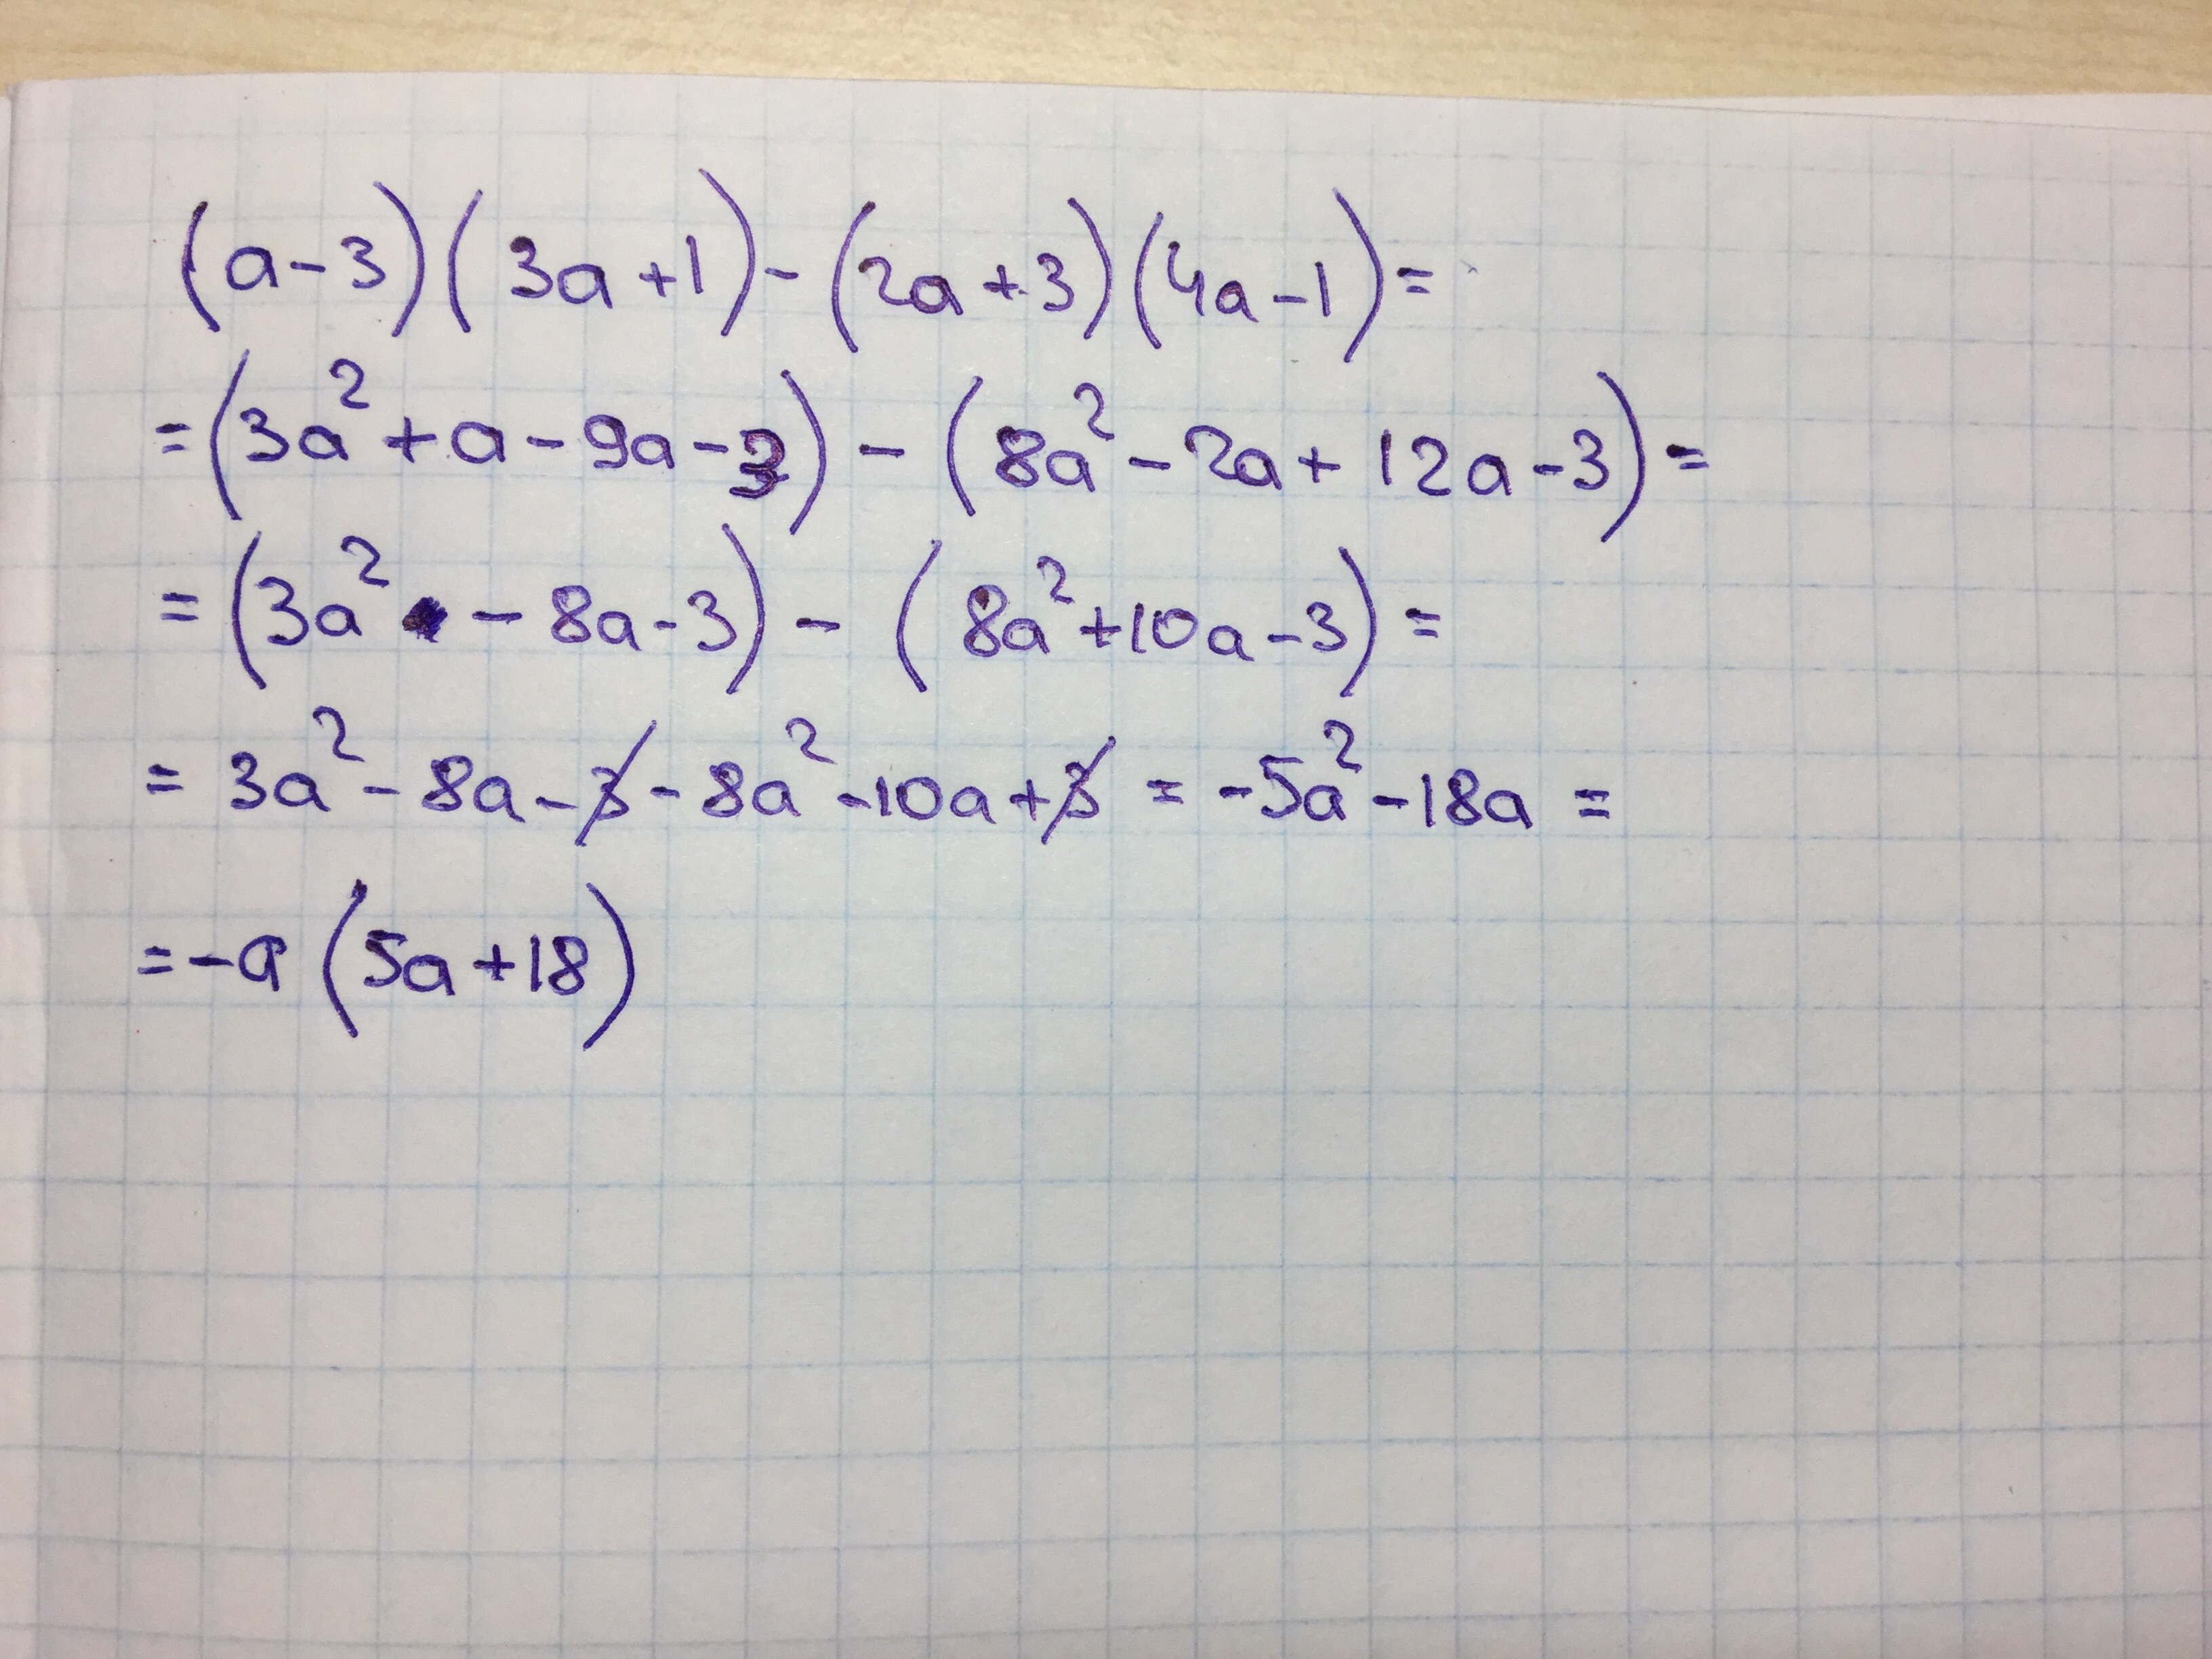 (a-3)(3a+1)-(2a+3)(4a-1)=
=(3a²+a-9a-3)-(8a²-2a+12a-3)=
=(3a²-8a-3)-(8a²+10a-3)=
=3a²-8a-3-8a²-10a+3=-5a²-18a=
=-a(5a+18)